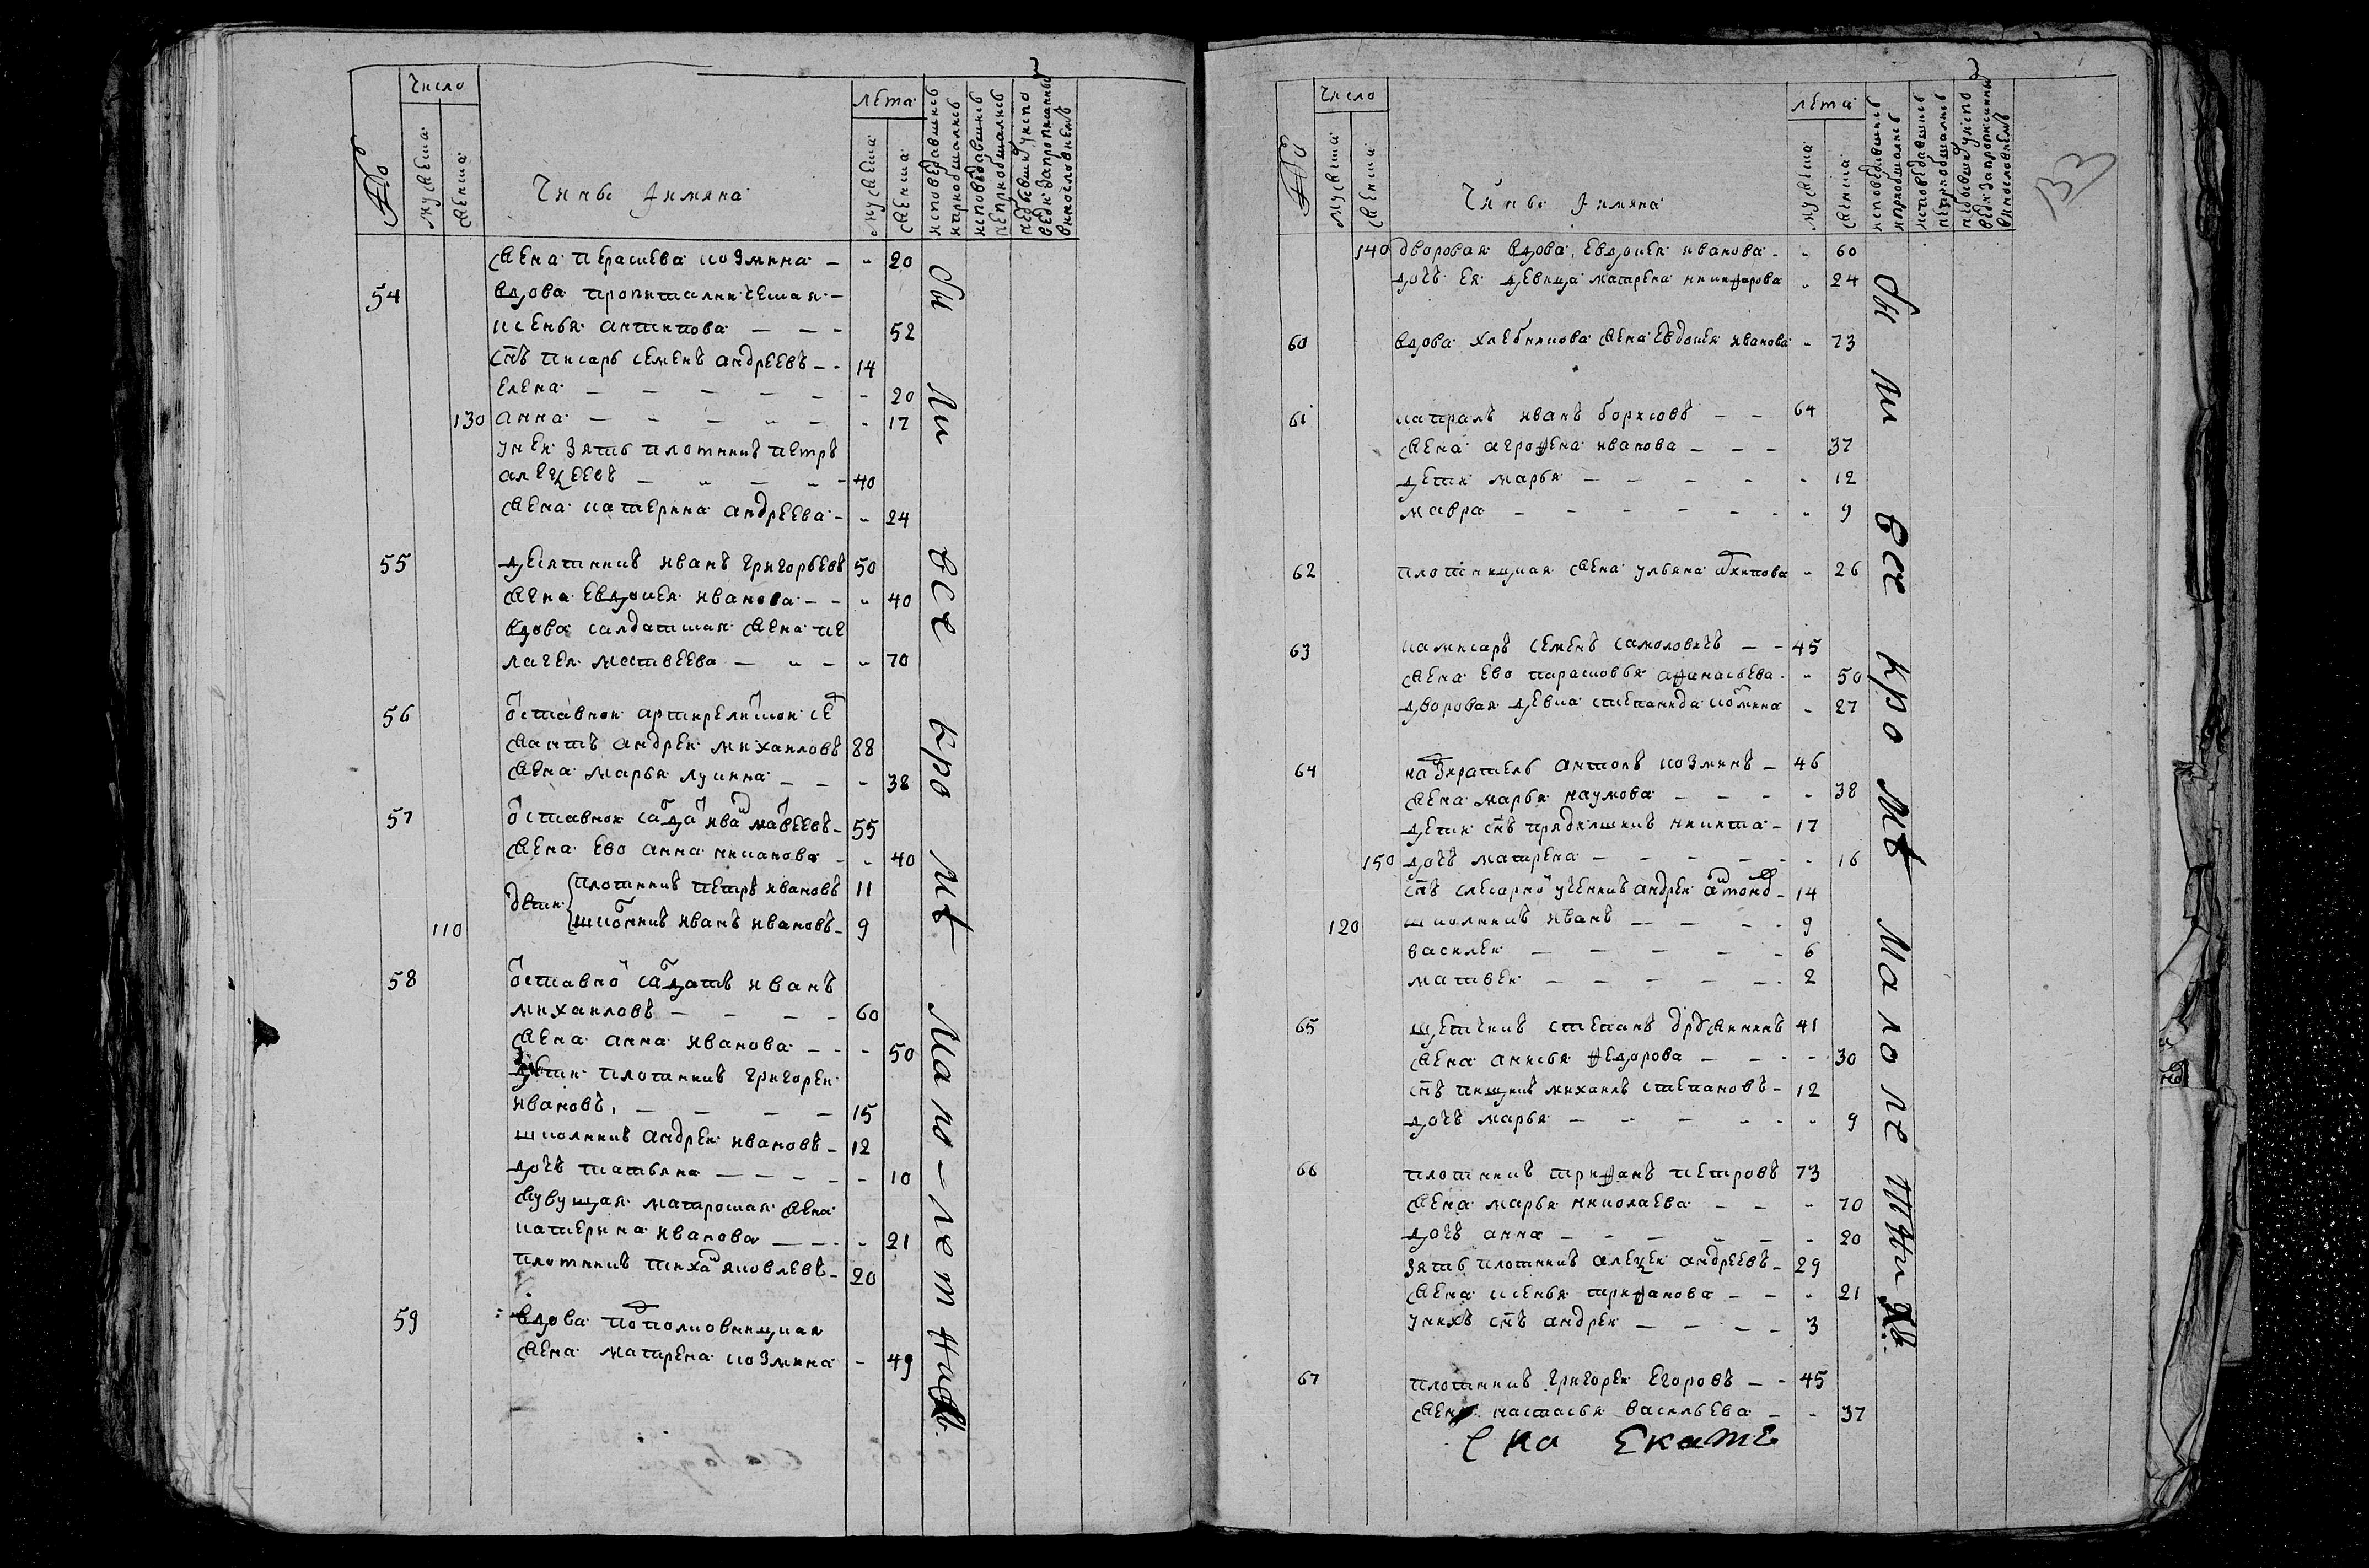 число
№
мужеска
женска
Чины и имяна
лета
мужеска
женска
исповедавшиеся и приобщались
исповедавшиеся неприобщались
небывшия у исповеди
жена перасиева козмина - " 20
54 вдова пропитаникческая -
ксенья антипова - - - 52
снъ писарь семенъ андреевъ - - 14
елена - - - - - - 20
130 анна - - - " - " 17
у нея зять плотникъ петръ
алеѯеевъ - " - " - 40
жена катерина андреева - " 24
55 десятникъ иванъ григорьевъ 50
жена евдокея иванова - - " 40
вдова салдатская жена пе
лагея матвеева - " - " 70
56 отставной артирелискои се
жантъ андреи михаиловъ 88
жена марья лукина - - - 38
57 отставнои салда ива мавеевъ - 55
жена ево анна никанова - " 40
дети плотникъ петръ ивановъ 11
110 школникъ иванъ ивановъ - 9
58 отставно садатъ иванъ
михаиловъ - - - - 60
жена анна иванова - - - 50
дети плотникъ григореи
ивановъ, - - - - 15
школникъ андреи ивановъ - 12
дочь татьяна - - - - - 10
живущая матроская жена
катерина иванова - - - - 21
плотникъ тиха яковлевъ - 20
59 вдова потполковницкая
жена матрена козмина - 49
бы ли все кро мѣ мало-летныхъ
число
№
мужеска
женска
Чины и имяна
лета
мужеска
женска
исповедавшиеся и приобщались
исповедавшиеся неприобщались
небывшия у исповеди
33
140 дворовая вдова, евдокея иванова - - 60
дочь ея девица матрена никифарова " 24
60 вдова хлебникова жена евдокея иванова " 73
61 капралъ иванъ борисовъ - - 64
жена агрофена иванова - - - 37
дети марья - - - - - 12
мавра - - - - - - " 9
62 плотницкая жена ульяна архипова " 26
63 камисаръ семенъ самоловичъ - - 45
жена ево парасковья афанасьева - " 50
дворовая девка степанида козмина " 27
64 надзиратель антонъ козминъ - 46
жена марья наумова - - - - 38
дети снъ прядилщикъ никита - 17
150 дочь матрена - - - - - - 16
снъ слесарно ученикъ андреи антонов - 14
120 школникъ иванъ - - - - - 9
василеи - - - - - 6
матвеи - - - - - - 2
65 щетчикъ степанъ дружининъ 41
жена анисья федорова - - - - 30
снъ пищикъ михаилъ степановъ - 12
дочь марья - - - - - " 9
66 плотникъ трифанъ петровъ 73
жена марья николаева - - " 70
дочь анна - - - - - " 20
зять плотникъ алеѯеи андреевъ - 29
жена ксенья трифанова - - " 21
у нихъ снъ андреи - - - - 3
67 плотникъ григореи егоровъ - - 45
жена настасья васильева - " 37
бы ли все кро мѣ мало летныхъ
ска Екате